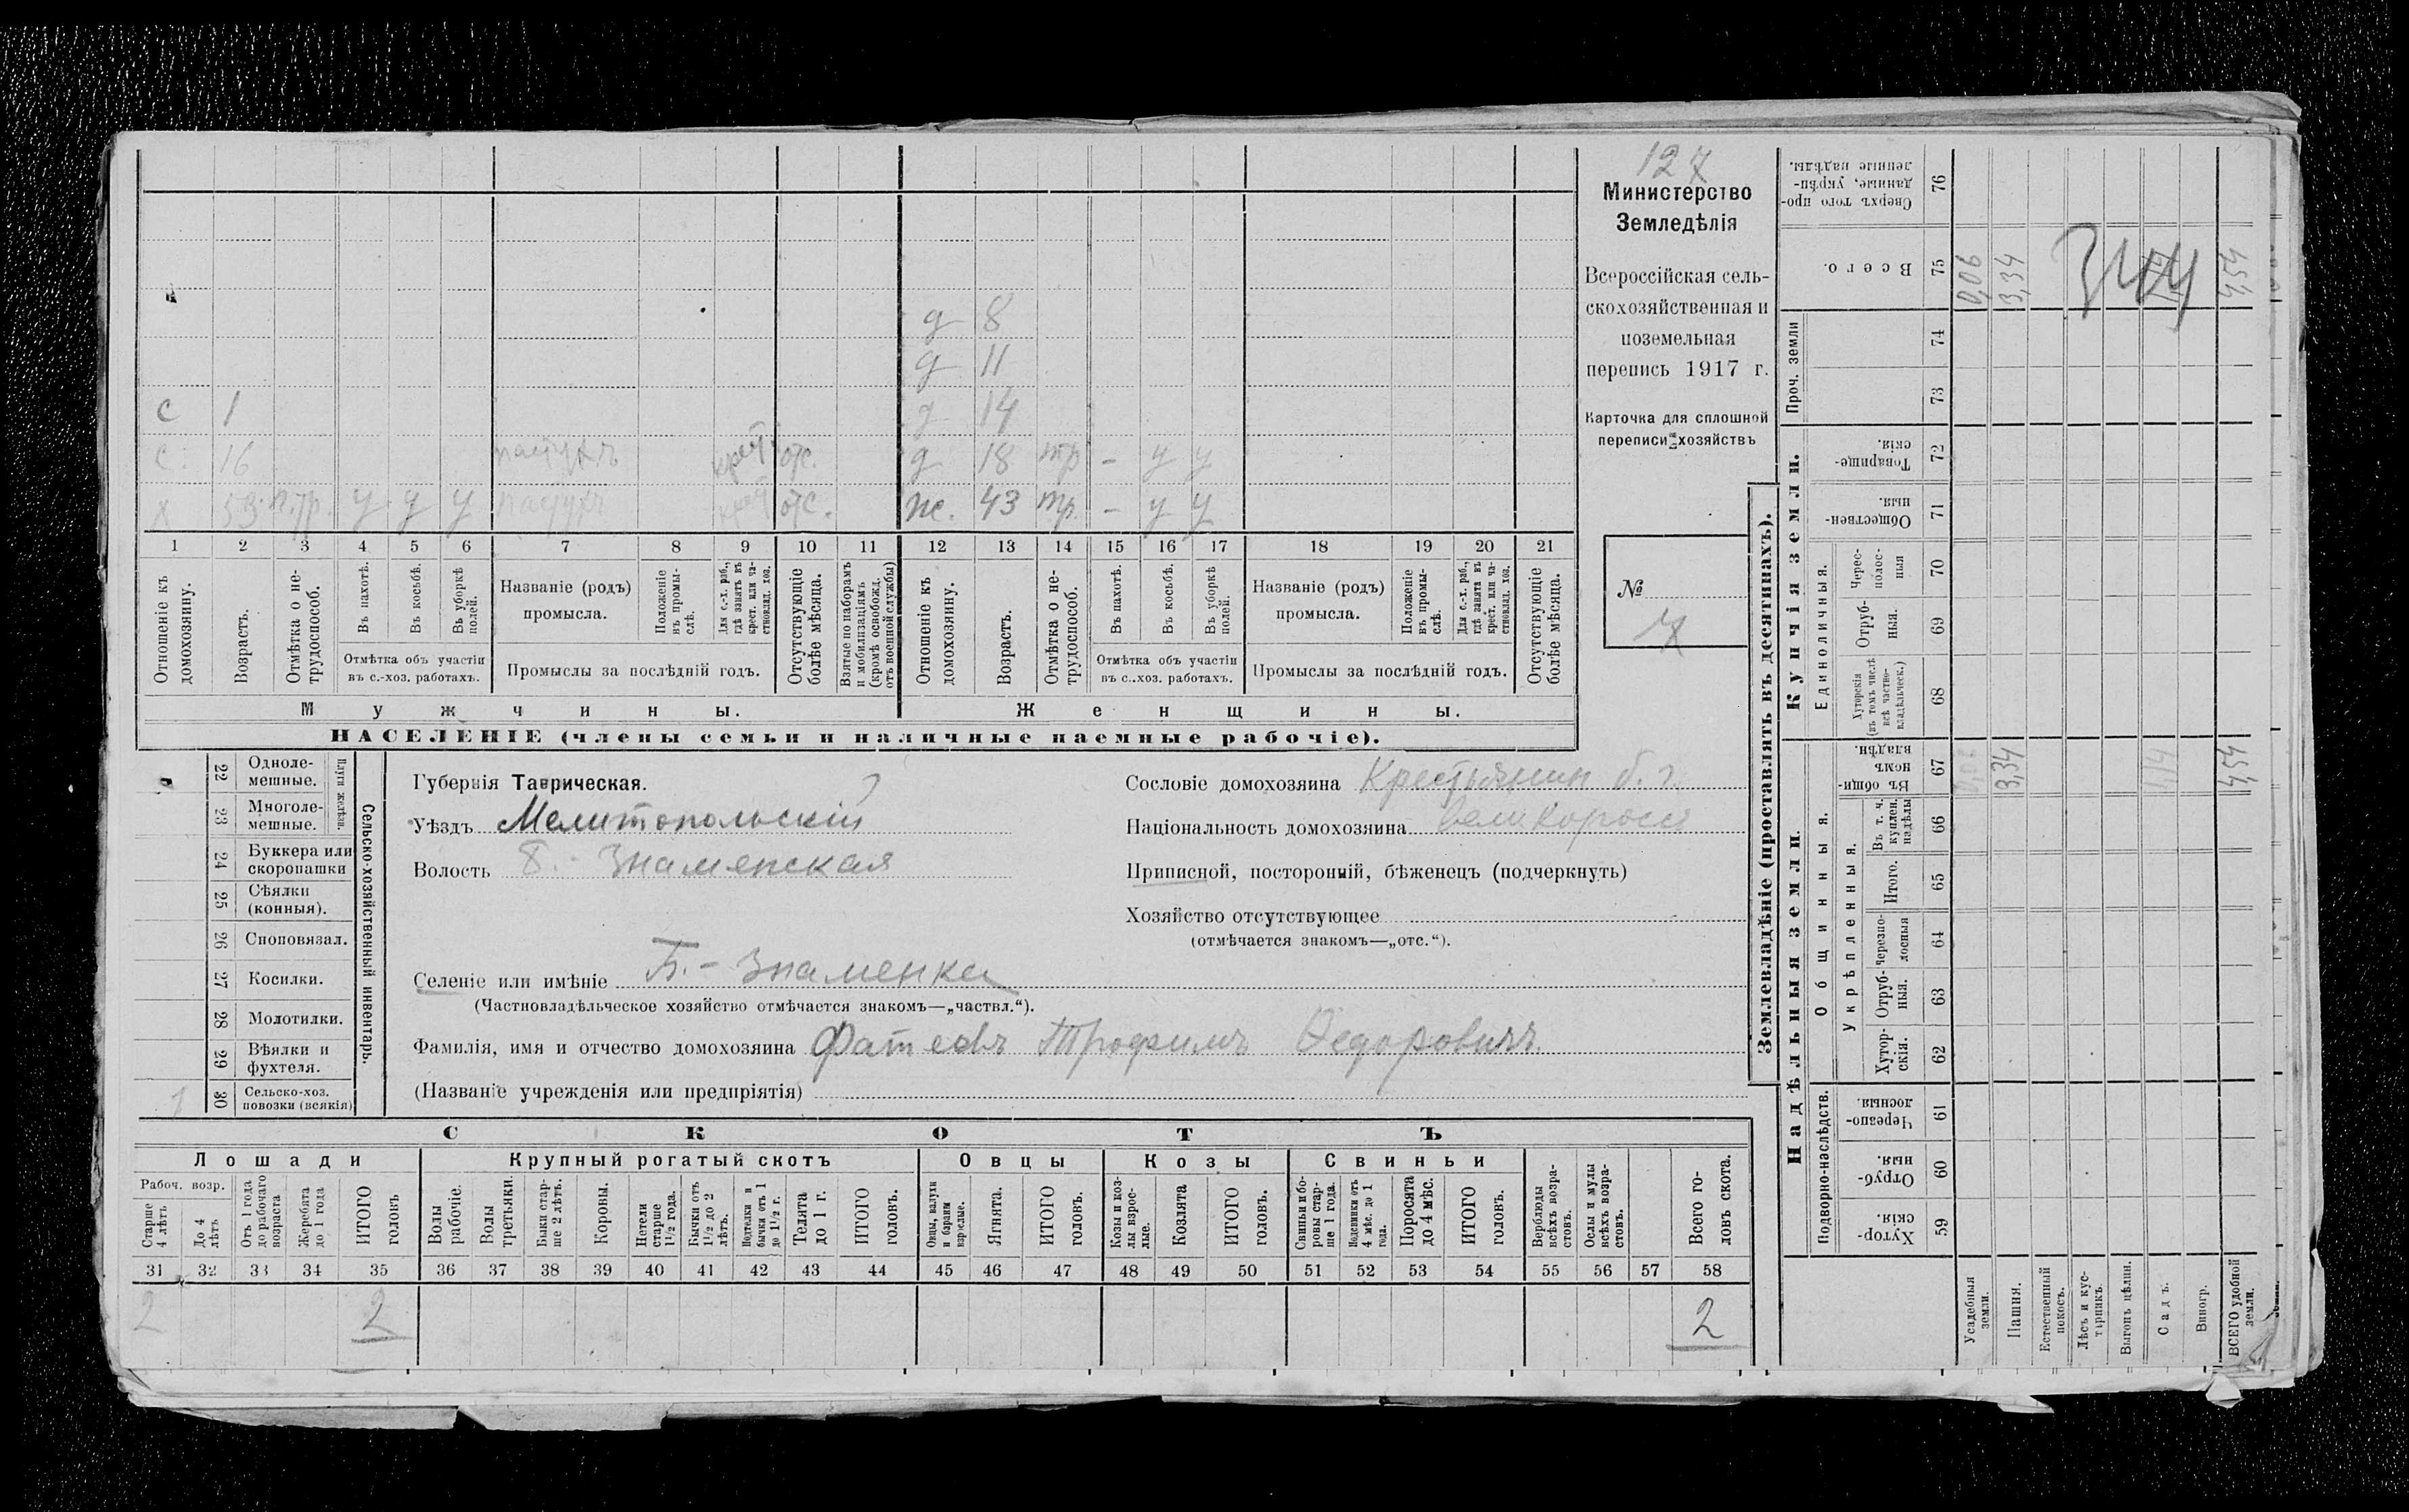 127
Министерство
Земледѣлія
Всероссійская сель-
скохозяйственная и
поземельная
перепись 1917 г.
Карточка для сплошной
переписи хозяйствъ
№
д 8
д 11
с 1 д 14
с. 16 пастухъ отс. д 18 тр - у у
х п.тр. у д у пастухъ отс. ж. 43 тр. - у у
1 2 3 4 5 6 7 8 9 10 11 12 13 14 15 16 17 18 19 20 21
Отношеніе къ домохозяину.
Возрастъ.
Отмѣтка о не-трудоспособ.
Въ пахотѣ.
Въ косьбѣ.
Въ уборкѣ полей.
Отмѣтка объ участіи
въ с.-хоз. работахъ.
Названіе (родъ)
промысла.
Положеніе въ промы-слѣ.
Для с.-х. раб., гдѣ занятъ въ крест. или ча-стновлад. хоз.
Промыслы за послѣдній годъ.
Отсутствующіе болѣе мѣсяца.
Взятые по наборамъ и мобилизаціямъ (кромѣ освобожд. отъ военной службы)
Отношеніе къ домохозяину.
Возрастъ.
Отмѣтка о не-трудоспособ.
Въ пахотѣ.
Въ косьбѣ.
Въ уборкѣ полей.
Отмѣтка объ участіи
въ с..хоз. работахъ.
Названіе (родъ)
промысла.
Положеніе въ промы-слѣ.
Для с.-х. раб., гдѣ занятъ въ крест. или ча-стновлад. хоз.
Промыслы за послѣдній годъ.
Отсутствующіе болѣе мѣсяца.
Мужчины.
Женщины.
НАСЕЛЕНІЕ (члены семьи и наличные наемные рабочіе).
22 Одноле-мешные.
23 Многоле-мешные.
Плуги желѣзн.
24 Буккера или скоропашки
25 Сѣялки (конныя).
26 Сноповязал.
27 Косилки.
28 Молотилки.
29 Вѣялки и фухтеля.
1 30 Сельско-хоз. повозки (всякія)
Сельско-хозяйственный инвентарь.
Губернія Таврическая.
Уѣздъ Мелитопольскій
Волость Б.-Знаменская
Селеніе или имѣніе Б.-Знаменка
(Частновладѣльческое хозяйство отмѣчается знакомъ—„частвл.“).
Фамилія, имя и отчество домохозяина Фатеевъ Трофимъ Ѳедоровичъ
(Названіе учрежденія или предпріятія)
Сословіе домохозяина Крестьянин б. г.
Національность домохозяина великороссъ
Приписной, посторонній, бѣженецъ (подчеркнуть)
Хозяйство отсутствующее
(отмѣчается знакомъ—„отс.“).
СКОТЪ
Лошади
Крупный рогатый скотъ
Овцы
Козы
Свиньи
Рабоч. возр.
Старше 4 лѣтъ
До 4 лѣтъ
Отъ 1 года до рабочаго возраста
Жеребята до 1 года
ИТОГО головъ
Волы рабочіе.
Волы третьяки.
Быки стар-ше 2 лѣтъ.
Коровы.
Нетели старше 1½ года.
Бычки отъ 1½ до 2 лѣтъ.
Подтелки и бычки отъ 1 до 1½ г.
Телята до 1 г.
ИТОГО головъ.
Овцы, валухи и бараны взрослые.
Ягнята.
ИТОГО головъ.
Козы и коз-лы взрос-лые.
Козлята
ИТОГО головъ.
Свиньи и бо-ровы стар-ше 1 года.
Подсвинки отъ 4 мѣс. до 1 года.
Поросята до 4 мѣс.
ИТОГО головъ.
Верблюды всѣхъ возра-стовъ.
Ослы и мулы всѣхъ возра-стовъ.
Всего го-ловъ скота.
31 32 33 34 35 36 37 38 39 40 41 42 43 44 45 46 47 48 49 50 51 52 53 54 55 56 57 58
2 2 2
Землевладѣніе (проставлять въ десятинахъ).
Надѣльныя земли.
Купчія земли.
Проч. земли
Подворно-наслѣдств.
Общинныя.
Укрѣпленныя.
Единоличныя.
Сверхъ того про-данные, укрѣп-ленные надѣлы. 76
Всего. 75 0,06 3,34 4,54
344
74
73
Товарище-скія. 72
Обществен-ныя. 71
Черес-полос-ныя 70
Отруб-ныя. 69
Хуторскія (въ томъ числѣ всѣ частно-владѣльческ.) 68
Въ общи-номъ владѣн. 67 0,06 3,34 1,14 4,54
Въ т. ч. куплен. надѣлы 66
Итого. 65
Черезпо-лосныя 64
Отруб-ныя. 63
Хутор-скія. 62
Черезпо-лосныя. 61
Отруб-ныя. 60
Хутор-скія. 59
Усадебныя земли.
Пашня.
Естественный покосъ.
Лѣсъ и кус-тарникъ.
Выгонъ цѣлин.
Садъ.
Виногр.
ВСЕГО удобной земли.